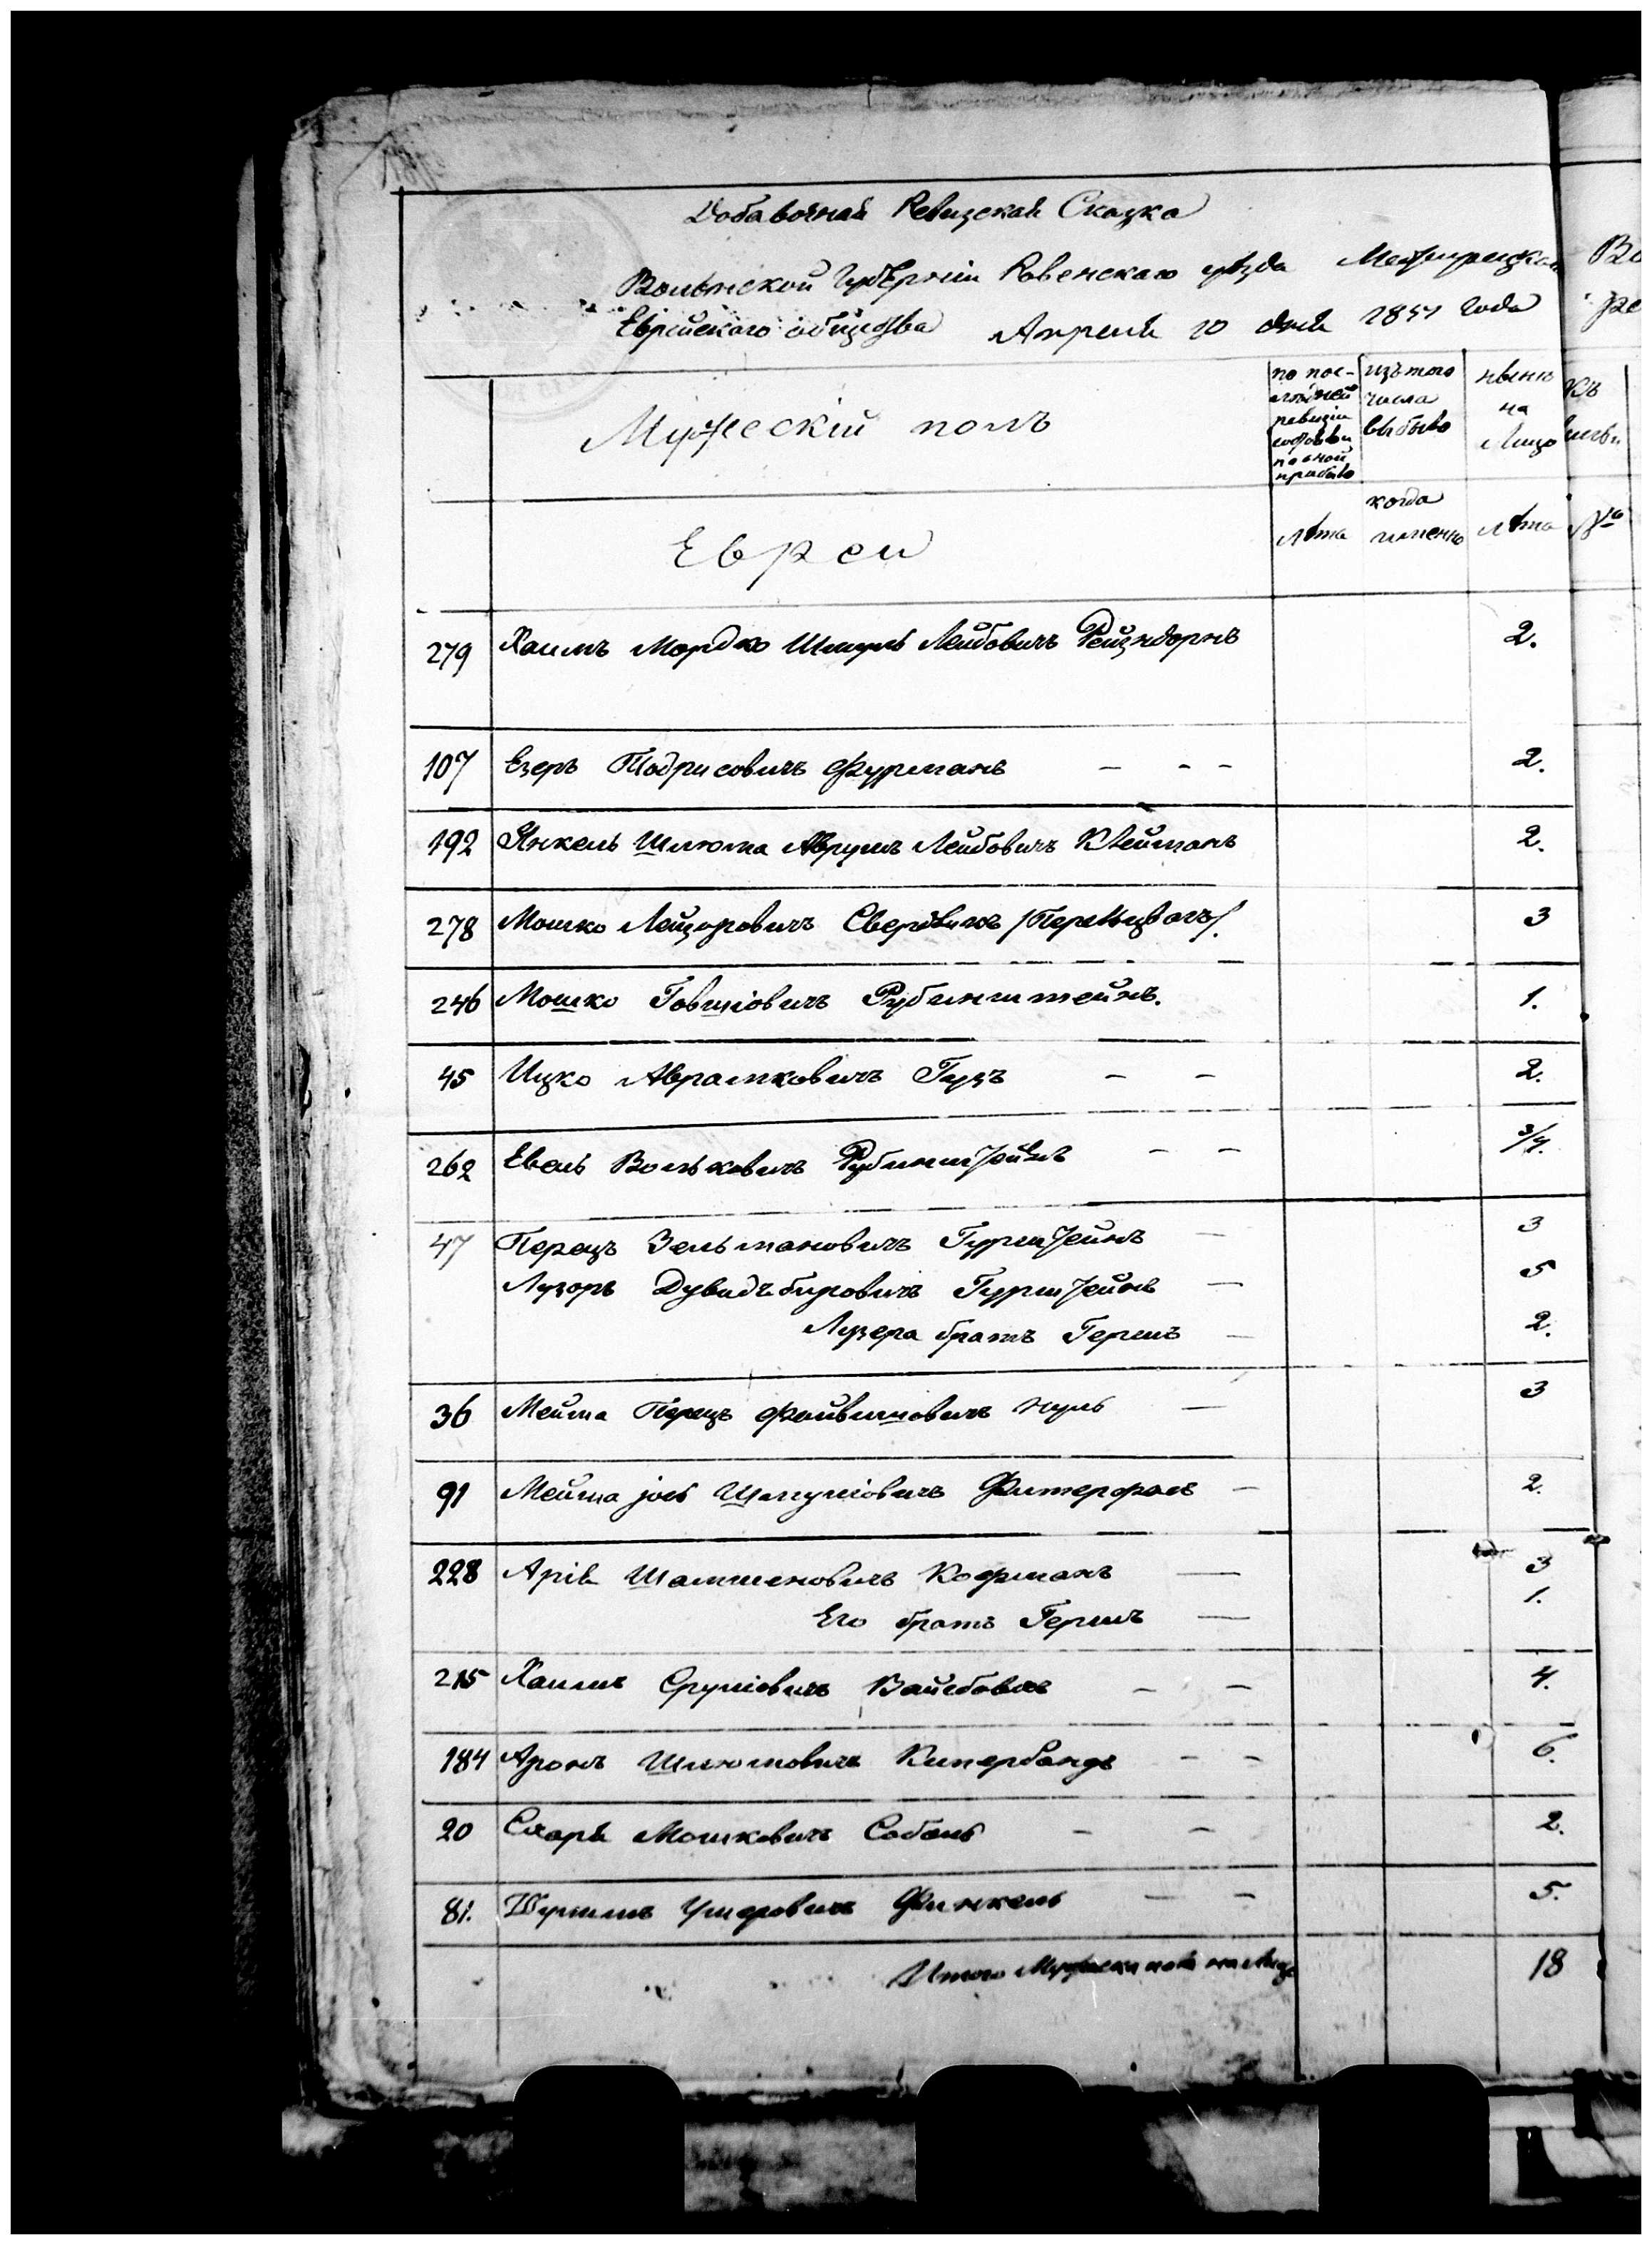 Добавочная Ревизская Сказка
Волынской Губерніи Ровенскаго уѣзда Межирицкаго
Еврейскаго общества Апреля 20 дня 1851 года
Мужескій полъ
по пос-
лѣдней
ревизіи
состояло
и послѣ оной
прибыло
изъ того
числа
выбыло
нынѣ
на
лицо
Евреи
Лѣта
когда
именно
Лѣта
279 Хаимъ Мордко Шмуль Лейбовичъ Рейзнборнъ 2.
107 Езеръ Тодрисовичъ Фурманъ – – – 2.
192 Янкель Шлюма Аврумъ Лейбовичъ Клейманъ 2.
278 Мошко Лейзоровичъ Свердликъ 3
246 Мошко Говшіовичъ Рубинштейнъ. 1.
45 Ицко Аврамковичъ Гузъ – – 2.
262 Евель Вольковичъ Рубинштейнъ – – 3/4.
47 Перецъ Зельмановичъ Гурштейнъ — 3
Лузоръ Дувидъ Беровичъ Гурштейнъ — 5
Лузера братъ Гершъ — 2.
36 Мейша Перецъ Файвишовичъ Нуль — 3
91 Мейша Јосъ Шмуліовичъ Фитерфасъ – 2.
228 Арія Шамшеновичъ Кофманъ — 3
Его братъ Гершъ — 1.
215 Хаимъ Сруліовичъ Вайсбовмъ – – 4.
184 Аронъ Шлюмовичъ Кипербандъ – – 6.
20 Сахарія Мошковичъ Собель – – 2.
81. Шулимъ Ушеровичъ Финкель — – 5.
Итого Мужеска пола на лицо 18